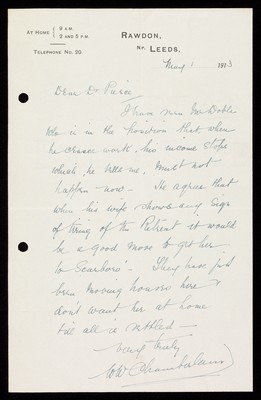 AT HOME { 9 A.M.
2 AND 5 P.M.
TELEPHONE No. 20.
RAWDON,
Nr. LEEDS,
May 1 1913
Dear Dr Pierce
I have seen Mr Doble
who is in the position that when
he ceases work, his income stops
which, he tells me, must not
happen now - He agrees that
when his wife shows any sign
of tiring of the Retreat it would
be a good move to get her
to Scarboro' - They have just
been moving houses here &
don't want her at home
till all is settled -
Very truly
W Chamberlain